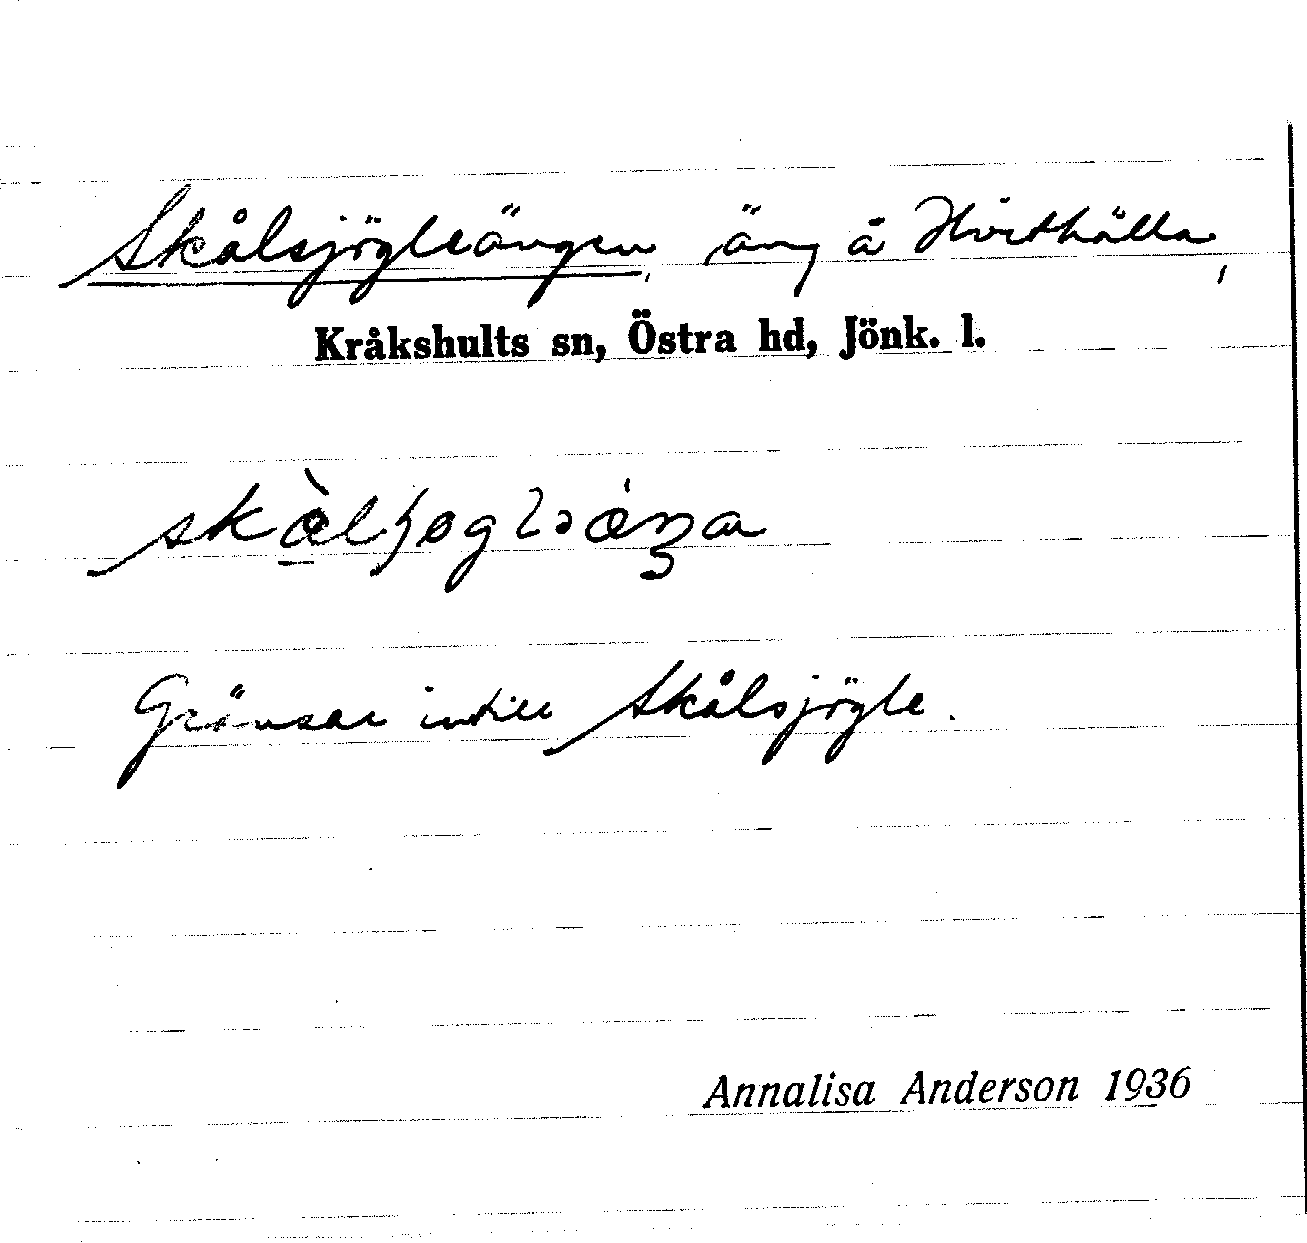 Skålsjögleängen, äng å Hvithälla,
Kråkshults sn, Östra hd, Jönk. l.
Gränsar intill Skålsjögle.
Annalisa Anderson 1936